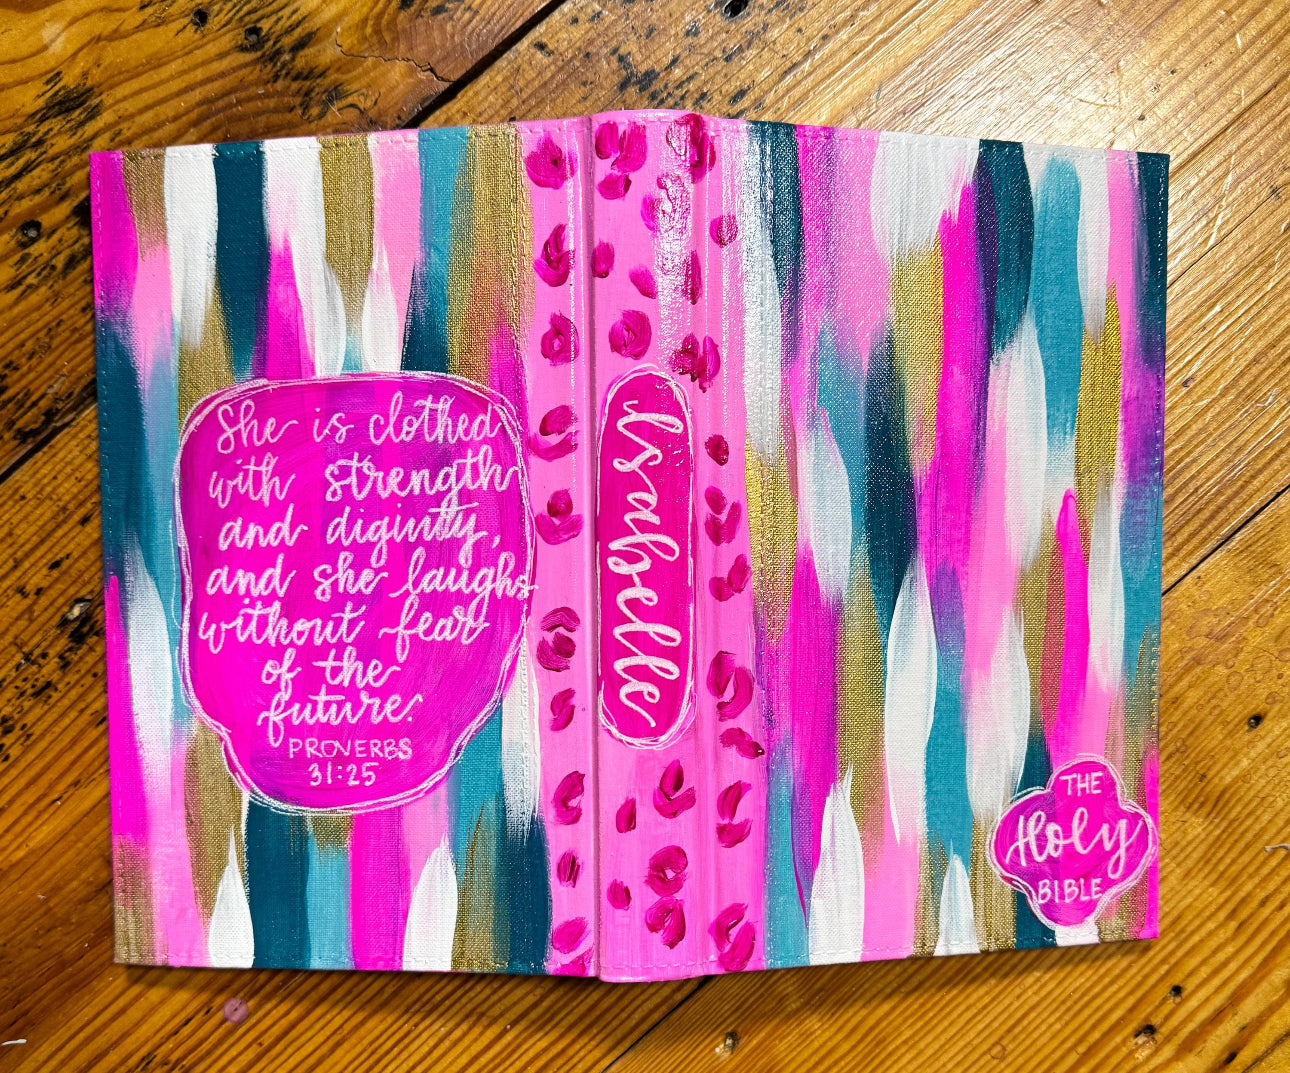 She is clothed
with strength
and diginity,
and she laughs
without fear
of the
future.
PROVERBS
31:25
Isabelle
THE
Holy
BIBLE